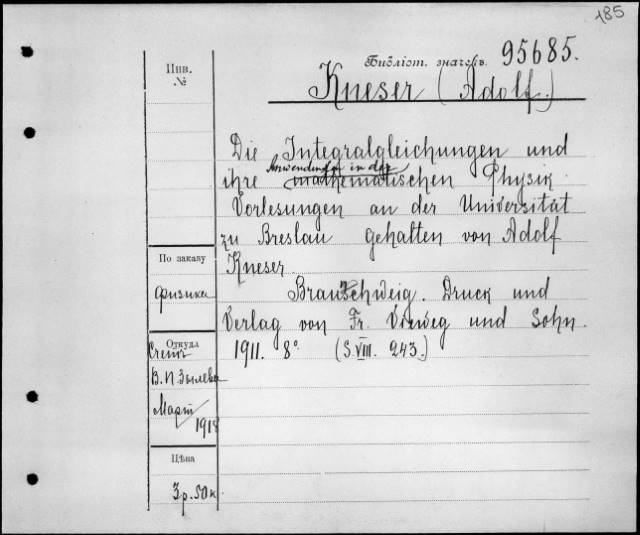 185
Библіот. значекъ. 95685.
Kneser (Adolf.)
Инв.
№
Die Integralgleichungen und
Anwendungen in der
ihre mathematischen Physik
Vorlesungen an der Universität
zu Breslau gehalten von Adolf
Kneser.
Braunschweig. Druck und
Verlag von Fr. Vieweg und Sohn.
1911. 8° (S. VIII. 243.)
По заказу
физика
Откуда
Счетъ
В. П.
Мартъ
1918
Цѣна
3 р. 50 к